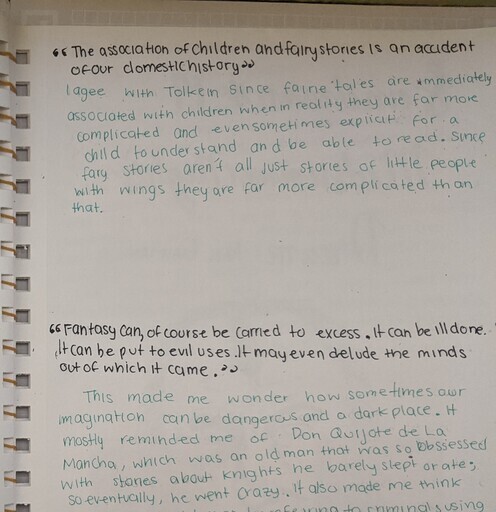 “ The association of Children and fairystories is an accident
of our domestic history ”
I agee with Tolkein since fairie tales are immediately
associated with children when in reality they are far more
complicated and even sometimes explicit for a
child to understand and be able to read. Since
fary stories aren't all just stories of little people
with wings they are far more complicated than
that.
“ Fantasy can, of course be carried to excess. It can be ill done.
It can be put to evil uses. It may even delude the minds
out of which it came. ”
This made me wonder how sometimes our
imagination can be dangerous and a dark place. It
mostly reminded me of Don Quijote de La
Mancha, which was an old man that was so obssessed
with stories about knights he barely slept or ate;
so eventually, he went crazy. It also made me think
to criminals using